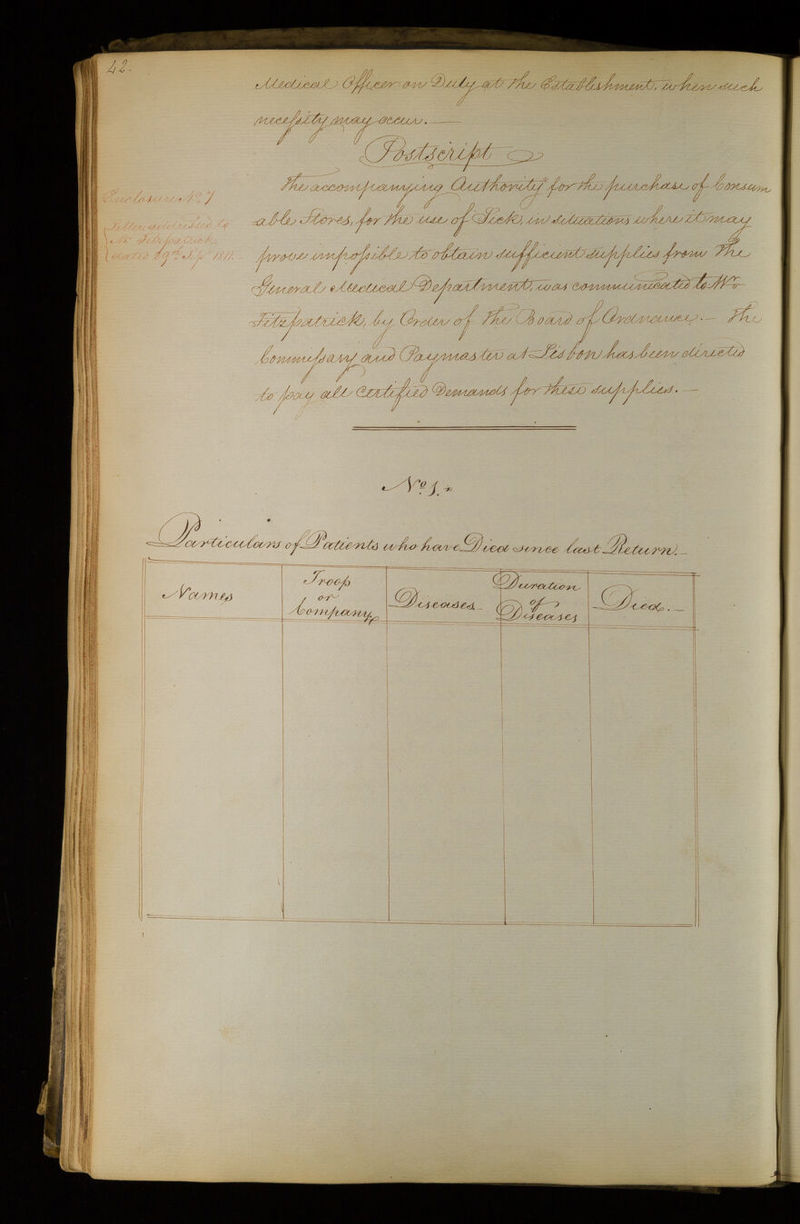 42.
Medical Officer on Duty at the Establishment, when such
necessity may occur.
Postscript
The accompanying Authority for the purchase of Consum
able Stores, for the use of Sick, in situations where it may
prove impossible to obtain sufficient supplies from the
General Medical Department, was communicated to Mr
Fitzpatrick, by Order of the Board of Ordnance. — The
Commissary and Paymaster at Lisbon has been directed
to pay all Certified Demands for these supplies. —
Enclosure No. 7
Letter addressed to
Mr Fitzpatrick,
dated 1811.
No. 1.
Particulars of Patients who have Died since last Return. —
Names
Troop
or
Company
Diseases
Duration
of
Diseases
Died. —